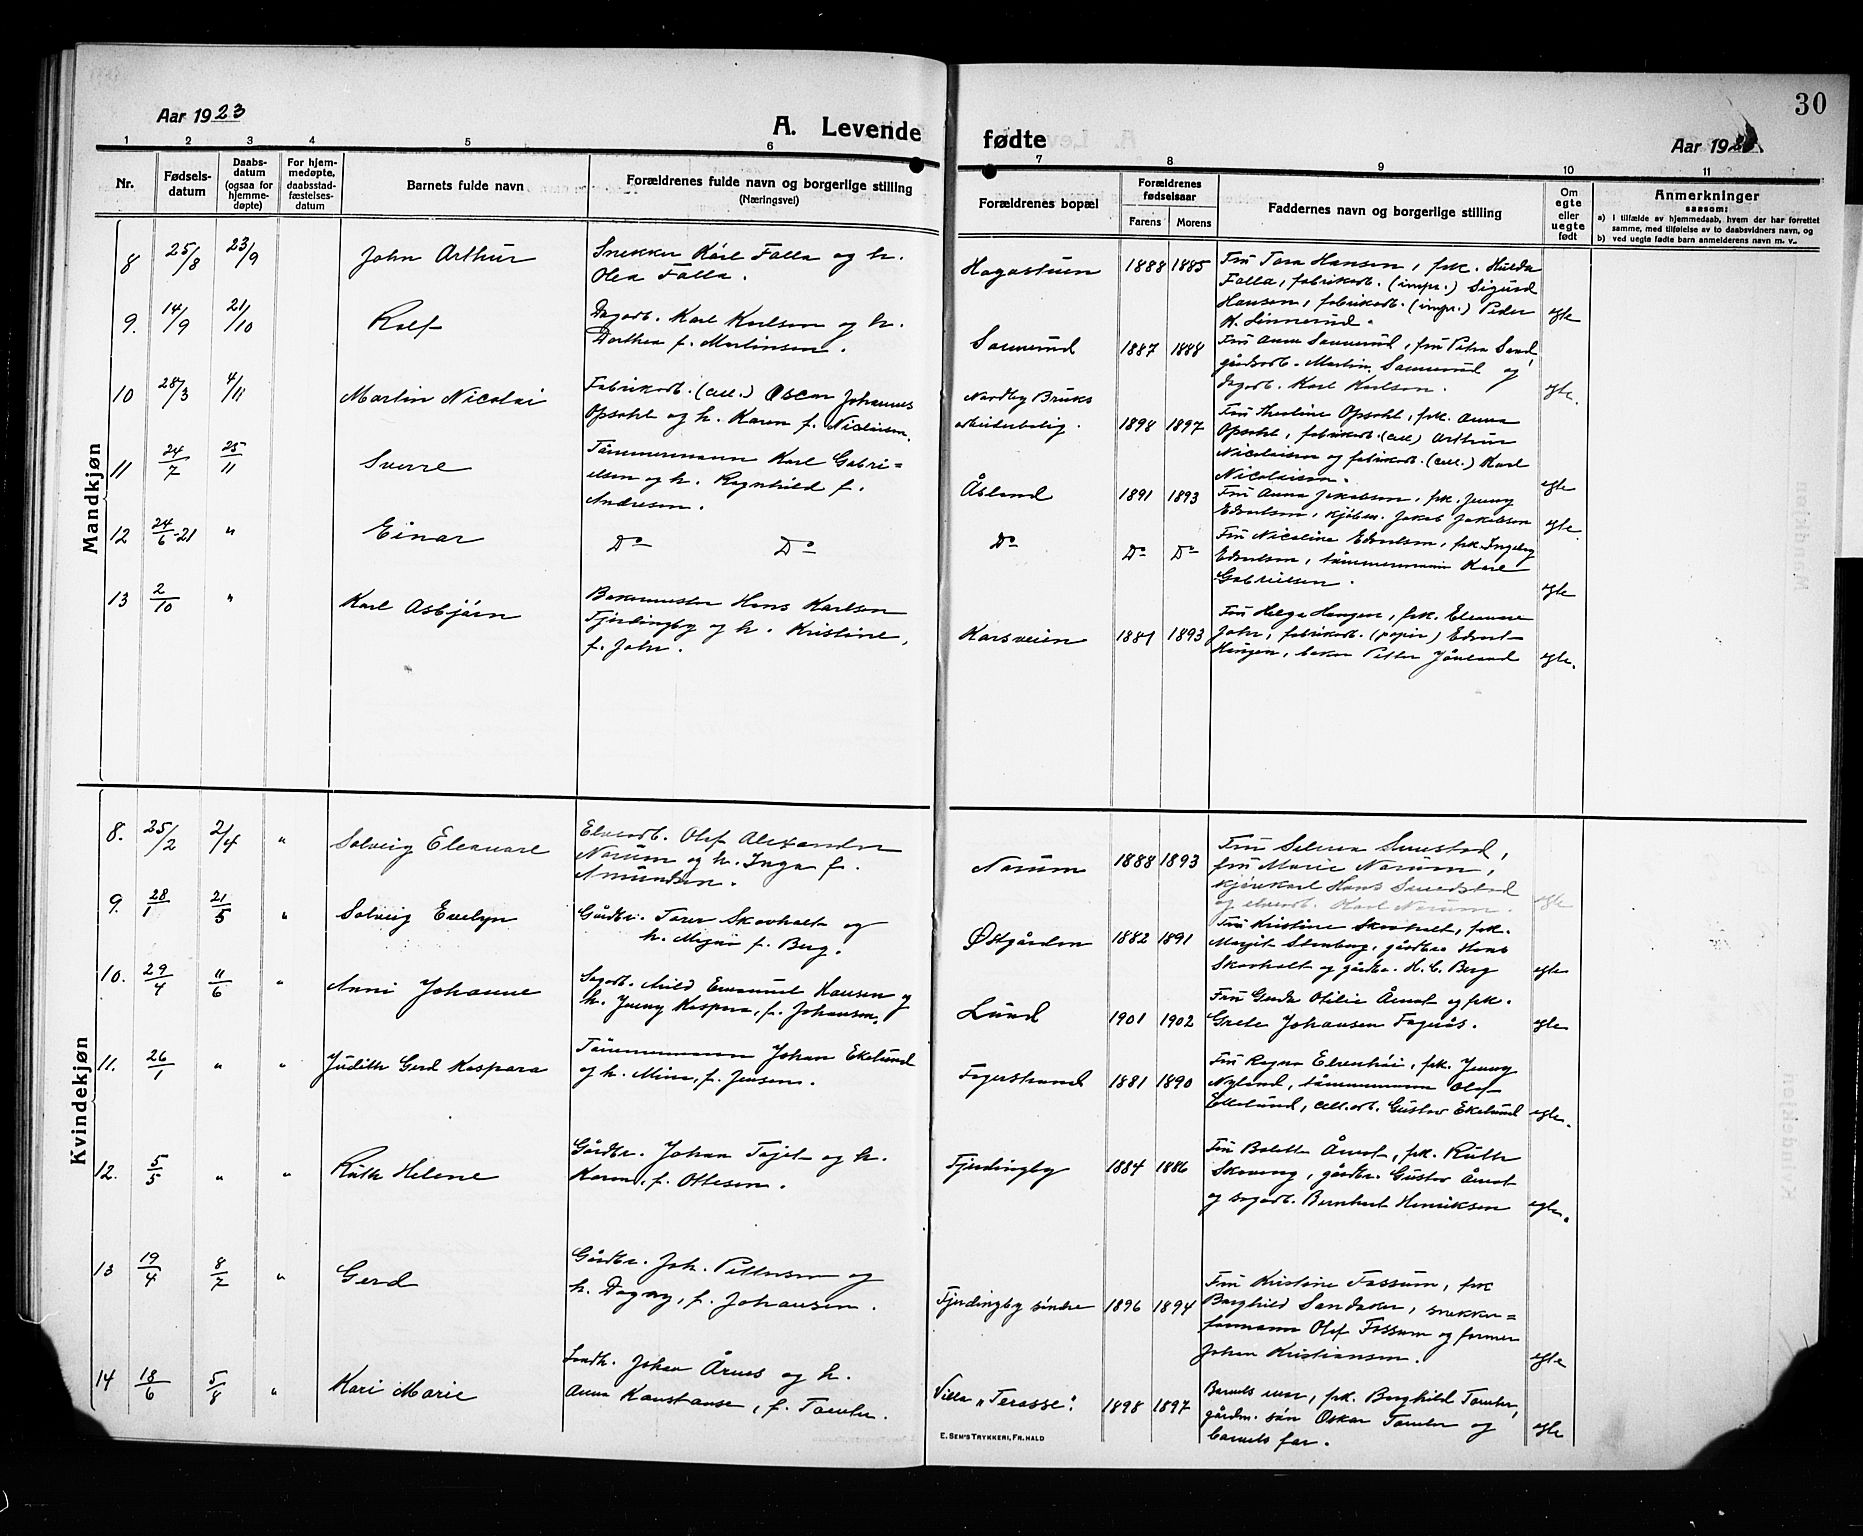 30
Aar 1923
A. Levende
fødte
Aar 192
1 2 3 4 5 6 7 8 9 10 11
Nr.
Fødsels-
datum
Daabs-
datum
(ogsaa for
hjemme-
døpte)
For hjem-
medøpte,
daabsstad-
fæstelses-
datum
Barnets fulde navn
Forældrenes fulde navn og borgerlige stilling
(Næringsvei)
Forældrenes bopæl
Forældrenes
fødselsaar
Farens Morens
Faddernes navn og borgerlige stilling
Om
egte
eller
uegte
født
Anmerkninger
saasom:
a) i tilfælde av hjemmedaab, hvem der har forrettet
samme, med tilføielse av to daabsvidners navn, og
b) ved uegte fødte barn anmelderens navn m. v.
Mandkjøn
8 25/8 23/9 John Arthur
Snekker Karl Falla og h.
Olea Falla.
Hagastuen 1888 1885
Fru Tora Hansen, frk. Hulda
Falla, fabrikarb. (impr.) Sigurd
Hansen, fabrikarb. (impr.) Peder
K. Linnerud.
egte
9. 14/9 21/10 Rolf
Dagarb. Karl Karlsen og h.
Dorthea f. Martinsen.
Sannerud 1887 1888
Fru Anna Sannerud, fru Petra Sand
gårdsarb. Martin Sannerud og
dagarb. Karl Karlsen.
egte.
10 28/3 4/11 Martin Nicolai
Fabrikarb. (cell.) Oscar Johannes
Opsahl og h. Karen f. Nielsen.
Nordby Bruks
arbeiderbolig. 1898 1897
Fru Thestine Opsahl, frk. Anna
Opsahl, fabrikarb. (cell) Arthur
Nicolaisen og fabrikarb. (cell.) Karl
Nicolaisen.
egte
11 24/7 25/11 Sverre
Tömmermann Karl Gabri=
elsen og h. Ragnhild f.
Andresen.
Åsland 1891 1893
Fru Anna Jakobsen, frk. Jenny
Edvardsen, kjöbm. Jakob Jakobsen
egte.
12 24/6-21 " Einar
Do Do
Do Do Do
Fru Nicoline Edvardsen, frk. Ingeborg
Edvardsen, tömmermann Karl
Gabrielsen.
egte
13 2/10 " Karl Asbjörn
Bakermester Hans Karlsen
Fjerdingby og h. Kristine,
f. Jahr.
Korsveien 1881 1893
Fru Helga Haugen, frk. Eleanore
Jahr, fabrikarb. (papir) Edvart
Haugen, baker Petter
egte.
Kvindekjøn
8. 25/2 2/4 " Solveig Eleanore
Elvearb. Olaf Alexander
Norum og h. Inga f.
Amundsen.
Norum 1888 1893
Fru Selma Smestad,
fru Marie Norum,
kjörekarl Hans Smedstad
og elvearb. Karl Norum.
egte
9. 28/1 21/5 " Solveig Evelyn
Gårdbr. Torer Skovholt og
h. f. Berg.
Östgården 1882 1891
Fru Kristine Skovholt, frk.
Margit Stenberg, gårdbr. Hans
Skovholt og gårdbr. H. C. Berg
egte
10. 29/4 11/6 " Anni Johanne
Sagarb. Emanuel Hansen og
h. Jenny Kaspara, f. Johansen.
Lund 1901 1902
Fru Gerda Otilie Årnot og frk.
Grete Johansen Fagerås.
egte
11. 26/1 " " Judith Gerd Kaspara
Tömmermann Johan Ekelund
og h. Mina, f. Jensen.
Fagerstrand 1881 1890
Fru Ragna Elvenhöi, frk. Jenny
Nyland, tömmermann Olaf
Ekelund, cell.arb. Gustav Ekelund
egte.
12. 5/5 " " Ruth Helene
Gårdbr. Johan Tajet og h.
Karen, f. Ottesen.
Fjerdingby 1884 1886
Fru Bolette Årnot, frk. Ruth
Skoveng, gårdbr. Gustav Årnot
og sagarb. Bernhart Henriksen
egte.
13 19/4 8/7 " Gerd
Gårdbr. Joh. Pettersen og
h. Dagny, f. Johansen.
Fjerdingby söndre 1896 1894
Fru Kristine Fossum, frk
Borghild Sandaker, snekker=
formann Olaf Fossum og former
Johan Kristiansen.
egte
14 18/6 5/8 " Kari Marie
Landh. Johan Årnes og h.
Anna Konstanse, f. Tomter.
Villa "Terasse". 1898 1897
Barnets mor, frk. Borghild Tomter,
gårdm. sön Oskar Tomter og
barnets far.
egte
E. SEM'S TRYKKERI, FR.HALD